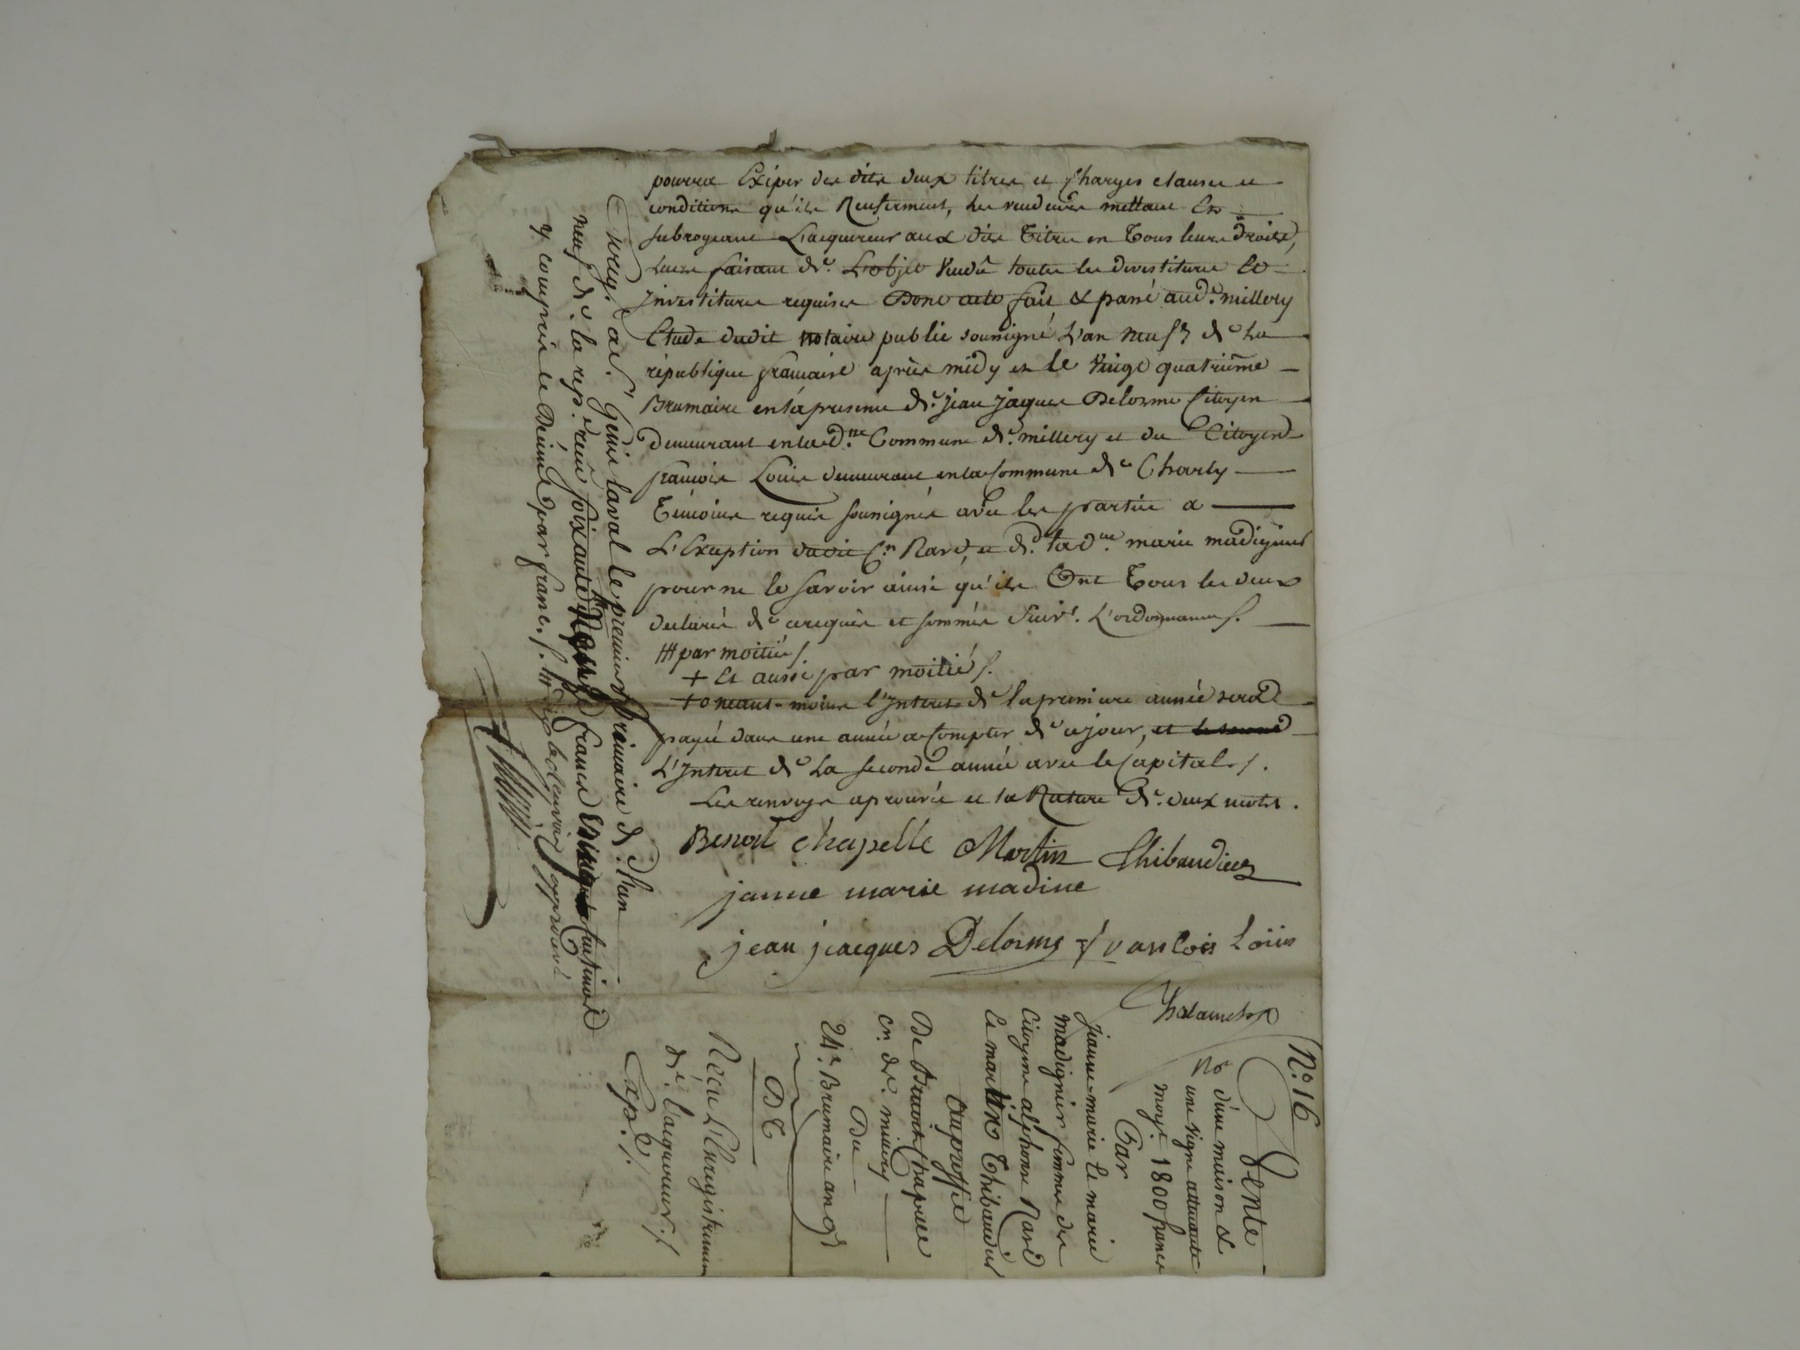 pourra Exiper des dits deux titres et Charges clauses et
conditions qu'ils Renferment, les vendeurs mettant Et
subrogeant L'acquereur aux dits Titres en Tous leurs droits,
Luire faisant de. L'objet Vendu toutes les divestitures Et
investitures requises Dont acte fait & passé aud. millery
Etude dudit notaire public soussigné L'an neuf de La
république française après midy et le Vingt quatrième
Brumaire en la presence de. jean jaques Delorme Citoyen
demeurant en lad.ne Commune de. millery et du Citoyen
francois Louis demeurant en la Commune de Charly
Témoins requis soussignés avec les parties a
L'Exception dudit C.n Nard, et de. lad.ne marie madignier
pour ne le savoir ainsi qu'ils Ont Tous les deux
declarés de ce requis et sommés Suiv.t L'ordonnance /.
### par moitiés /.
+ Et aussi par moitié /.
+o neant-moins l'Interet de la premiere année sera
payé dans une année a Compter de ce jour, et le second
L'Interet de La seconde année avec le Capital /.
Les renvoys aprouvés et la Rature de. deux mots.
Benoit chapelle Martin Thibaudier
janne marie madine
jean jeacques Delorme francois Loüis
Enreg. a St. Genis laval le premier frimaire de. l'an
neuf de. la rep. reçu soixante francs
y compris le Décime par franc /.
N.o 16
Vente
d'une maison &
une vigne attenante
moyt. 1800 francs
Par
jeanne-marie le marie
madignier femme de
Citoyen alphonse Nard
le martin Thibaudier
Au proffit
De Benoit Chapelle
cn. de. millery
Du
24.e Brumaire an 9
D C
Reçu L'Enregistrement
de. l'acquereur /.
Exp.é /.